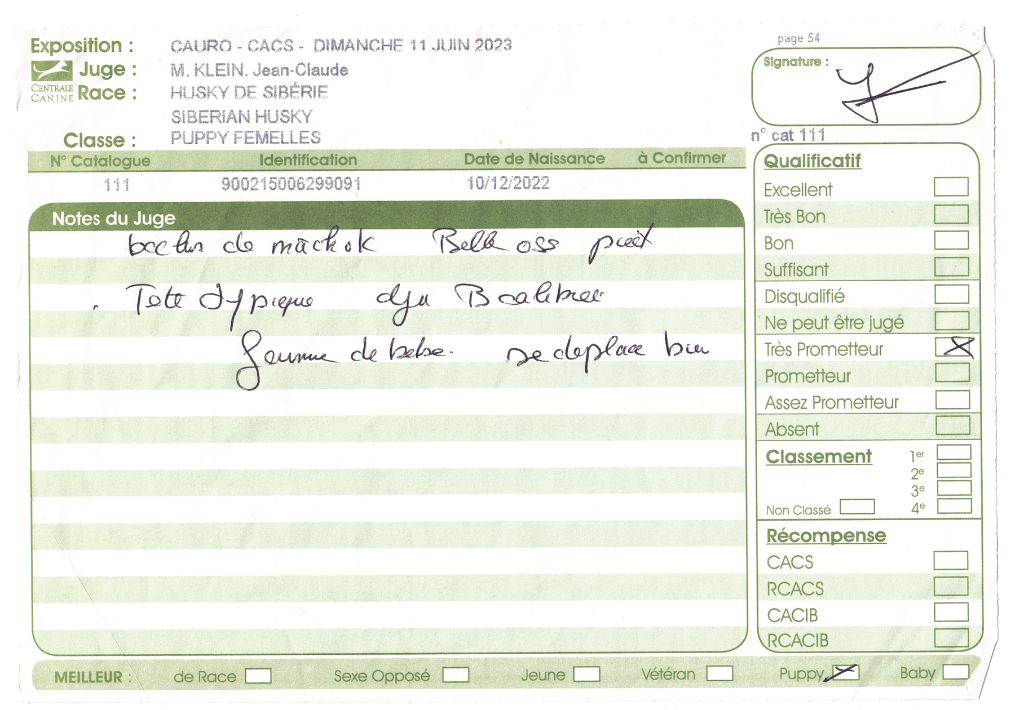 page 54
Exposition : CAURO - CACS - DIMANCHE 11 JUIN 2023
Signature :
CENTRALE CANINE
Juge : M. KLEIN. Jean-Claude
Race : HUSKY DE SIBÉRIE
SIBERIAN HUSKY
Classe : PUPPY FEMELLES
n° cat 111
N° Catalogue Identification Date de Naissance à Confirmer
111 900215006299091 10/12/2022
Notes du Juge
de Belle oss
Tete
de bebe. se deplace bien
Qualificatif
Excellent
Très Bon
Bon
Suffisant
Disqualifié
Ne peut être jugé
Très Prometteur
Prometteur
Assez Prometteur
Absent
Classement 1er
2e
3e
Non Classé 4e
Récompense
CACS
RCACS
CACIB
RCACIB
MEILLEUR : de Race Sexe Opposé Jeune Vétéran Puppy Baby